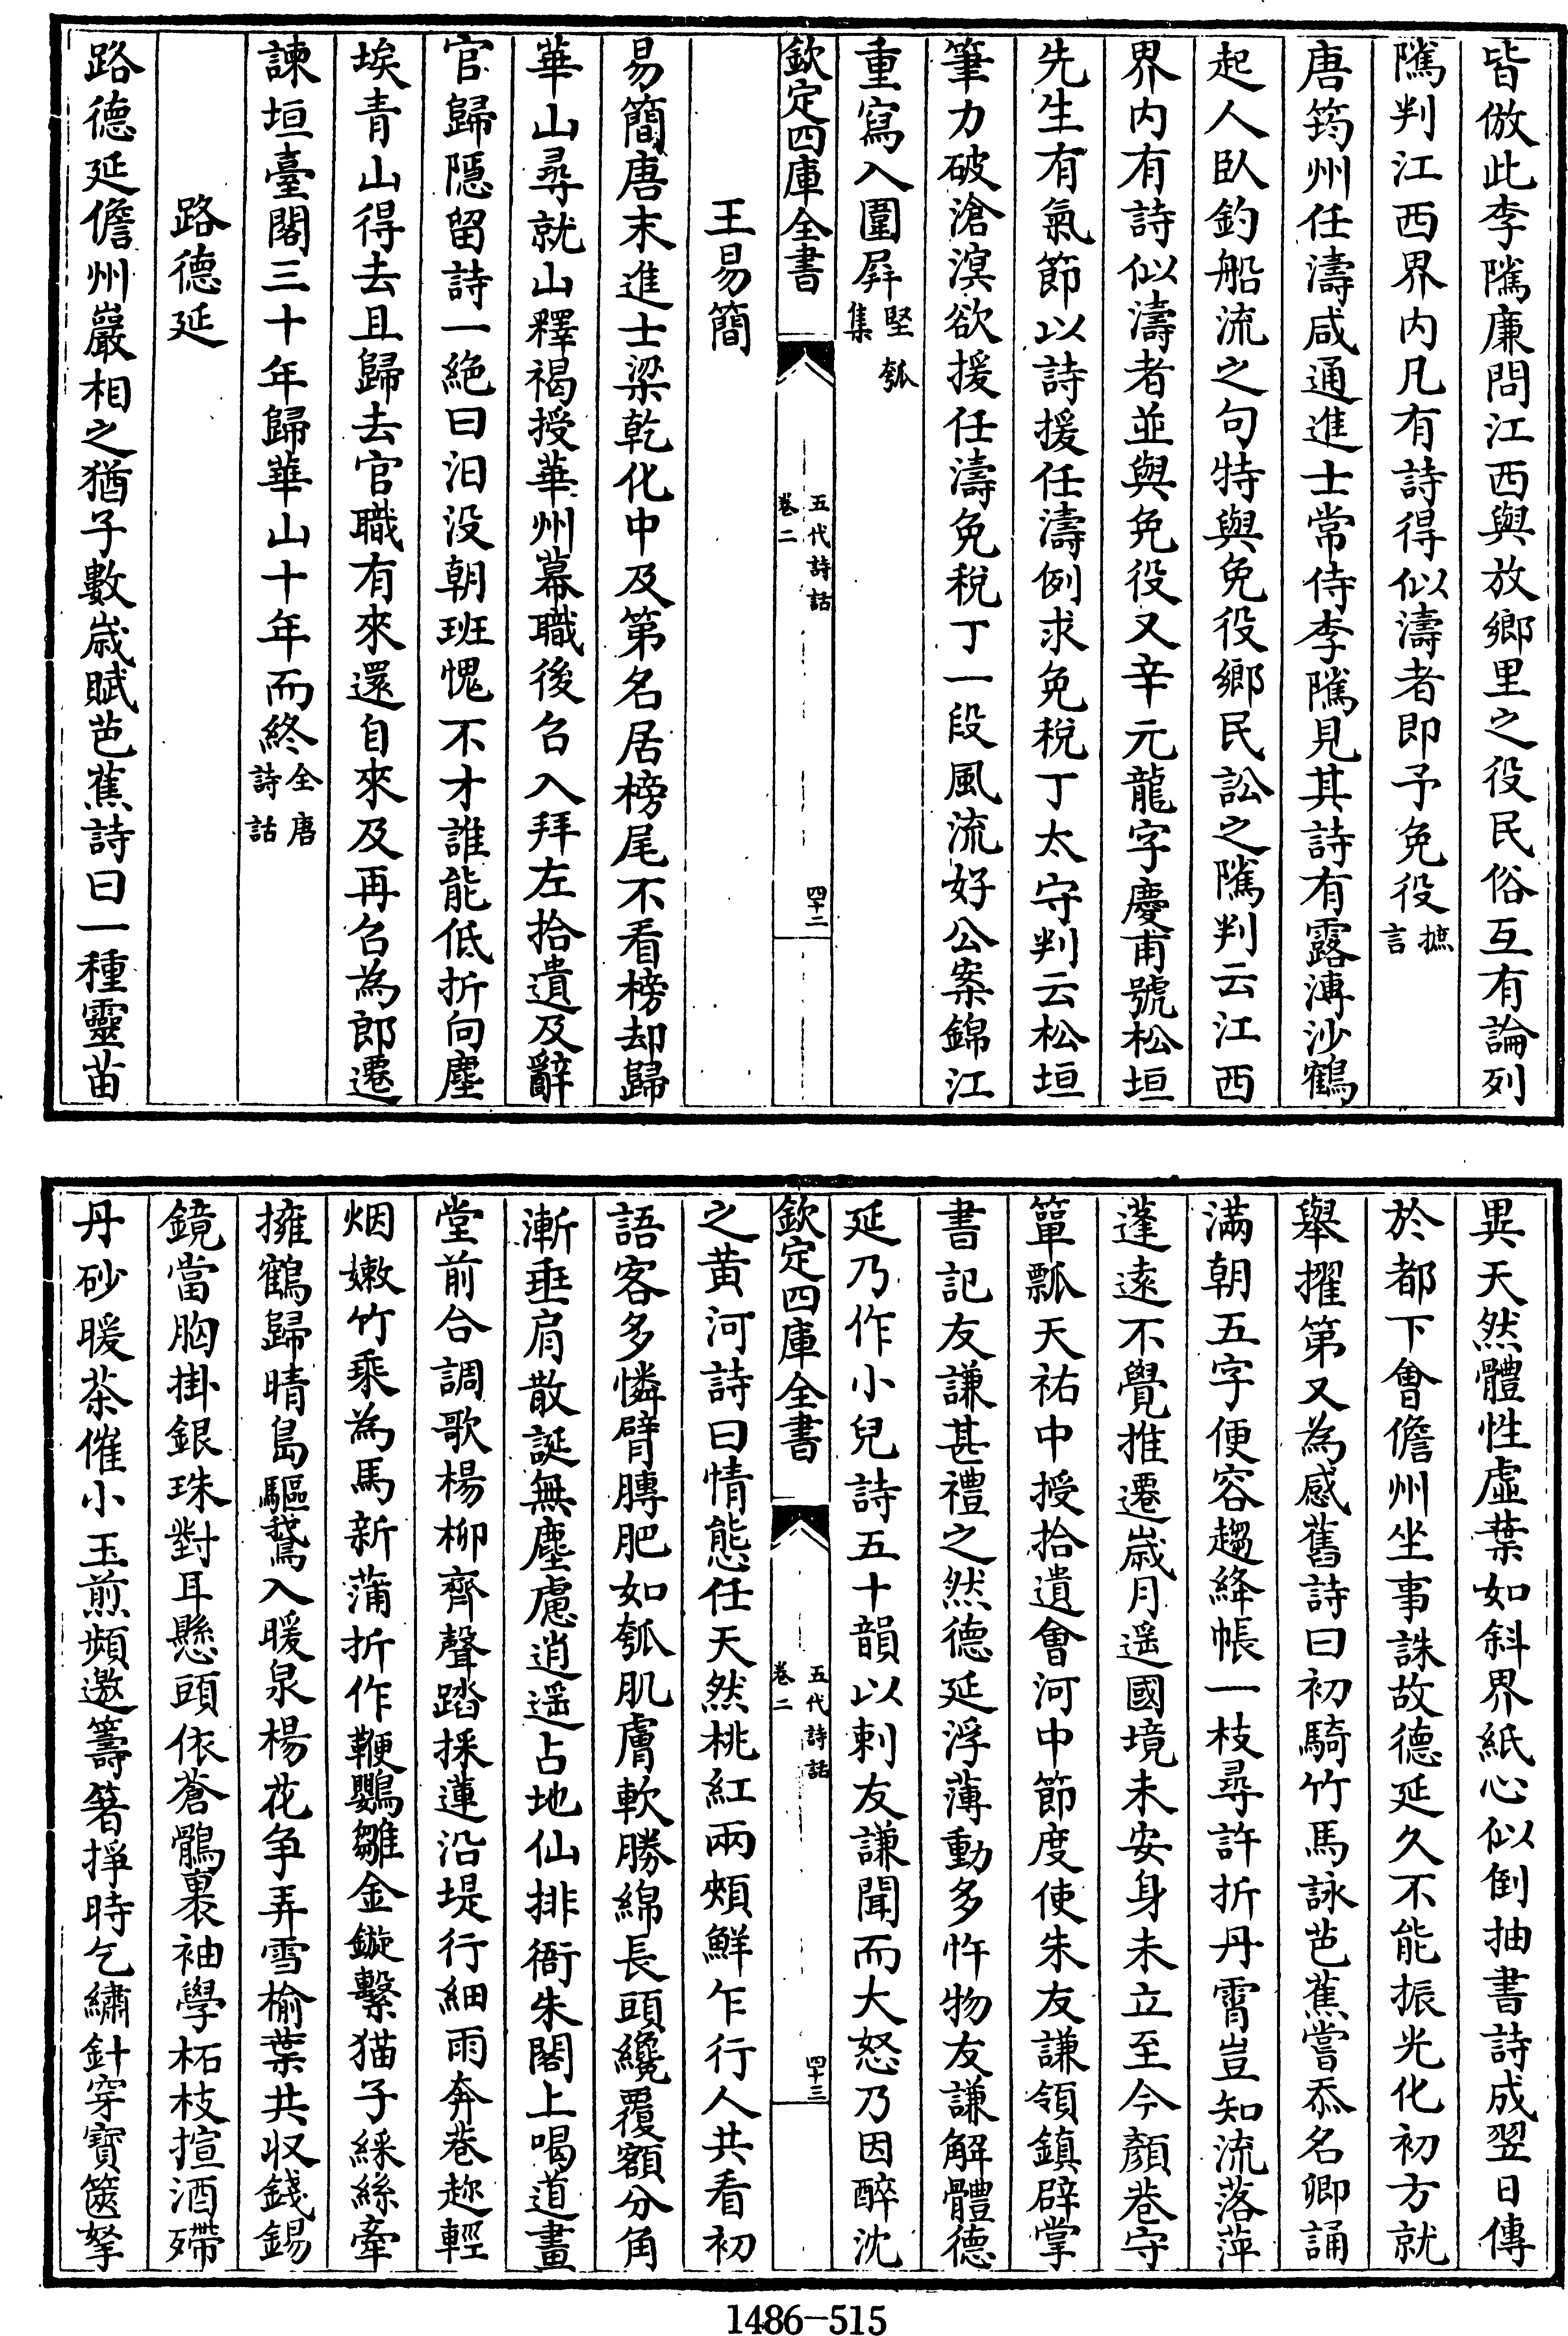 皆倣此李隲廉問江西與放鄉里之役民俗互有論列
隲判江西界内凡有詩得似濤者即予免役摭言
唐筠州任濤咸通進士常侍李隲見其詩有露漙沙鶴
起人臥釣船流之句特與免役鄉民訟之隲判云江西
界内有詩似濤者並與免役又辛元龍字慶甫號松垣
先生有氣節以詩援任濤例求免稅丁太守判云松垣
筆力破滄溟欲援任濤免稅丁一段風流好公案錦江
重寫入圍屏堅瓠集
欽定四庫全書
五代詩話
卷二
四十二
王易簡
易簡唐末進士梁乾化中及第名居榜尾不看榜却歸
華山尋就山釋褐授華州幕職後召入拜左拾遺及辭
官歸隱留詩一絶曰汩没朝班愧不才誰能低折向塵
埃青山得去且歸去官職有來還自來及再召為郎遷
諫垣臺閣三十年歸華山十年而終全唐詩話
路德延
路德延儋州巖相之猶子數歲賦芭蕉詩曰一種靈苗
異天然體性虛葉如斜界紙心似倒抽書詩成翌日傳
於都下會儋州坐事誅故德延久不能振光化初方就
舉擢第又為感舊詩曰初騎竹馬詠芭蕉嘗忝名卿誦
滿朝五字便容趨絳帳一枝尋許折丹霄豈知流落萍
蓬遠不覺推遷歲月遥國境未安身未立至今顏巷守
簞瓢天祐中授拾遺會河中節度使朱友謙領鎮辟掌
書記友謙甚禮之然德延浮薄動多忤物友謙解體德
延乃作小兒詩五十韻以刺友謙聞而大怒乃因醉沈
欽定四庫全書
五代詩話
卷二
四十三
之黄河詩曰情態任天然桃紅兩頰鮮乍行人共看初
語客多憐臂膊肥如瓠肌膚軟勝綿長頭纔覆額分角
漸垂肩散誕無塵慮逍遥占地仙排衙朱閣上喝道畫
堂前合調歌楊柳齊聲踏採蓮沿堤行細雨奔巷趂輕
烟嫩竹乘為馬新蒲折作鞭鸚雛金鏇繫猫子綵絲牽
擁鶴歸晴島驅鵞入暖泉楊花争弄雪榆葉共収錢錫
鏡當胸掛銀珠對耳懸頭依蒼鶻裹袖學柘枝揎酒殢
丹砂暖茶催小玉煎頻邀籌箸挣時乞繡針穿寶篋拏
1486-515